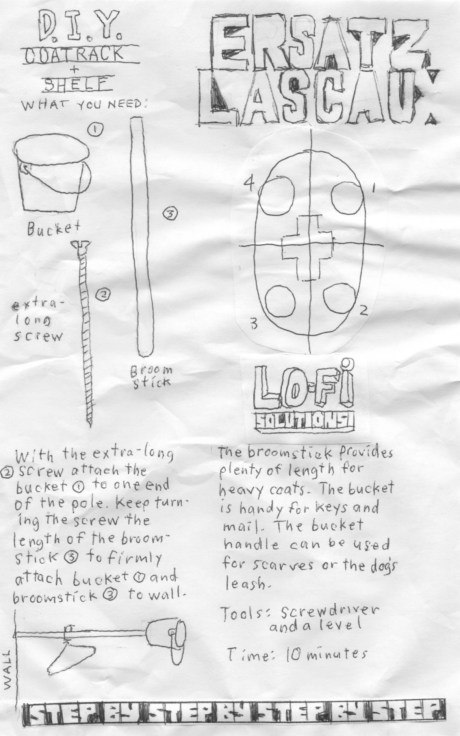 D.I.Y.
COATRACK
+
SHELF
WHAT YOU NEED:
1
Bucket
3
2
extra-
long
screw
Broom
stick
ERSATZ
LASCAUX
4
1
3
2
LO-Fi
SOLUTIONS!
With the extra-long
2 screw attach the
bucket 1 to one end
of the pole. Keep turn-
ing the screw the
length of the broom-
stick 3 to firmly
attach bucket 1 and
broomstick 3 to wall.
WALL
The broomstick provides
plenty of length for
heavy coats. The bucket
is handy for keys and
mail. The bucket
handle can be used
for scarves or the dog's
leash.
Tools: Screwdriver
and a level
Time: 10 minutes
STEP BY STEP BY STEP BY STEP